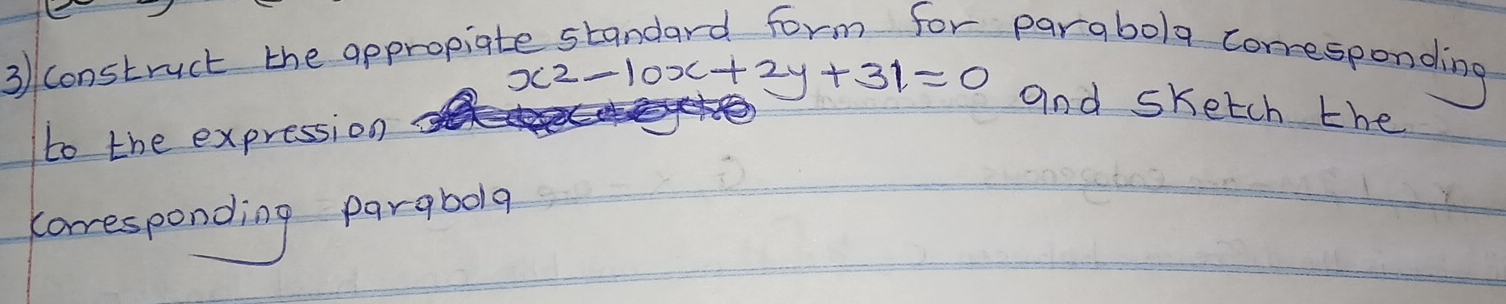 3) Construct the appropiate standard form for parabola corresponding
x2-10x+2y+31=0
to the expression and sketch the
corresponding parabola